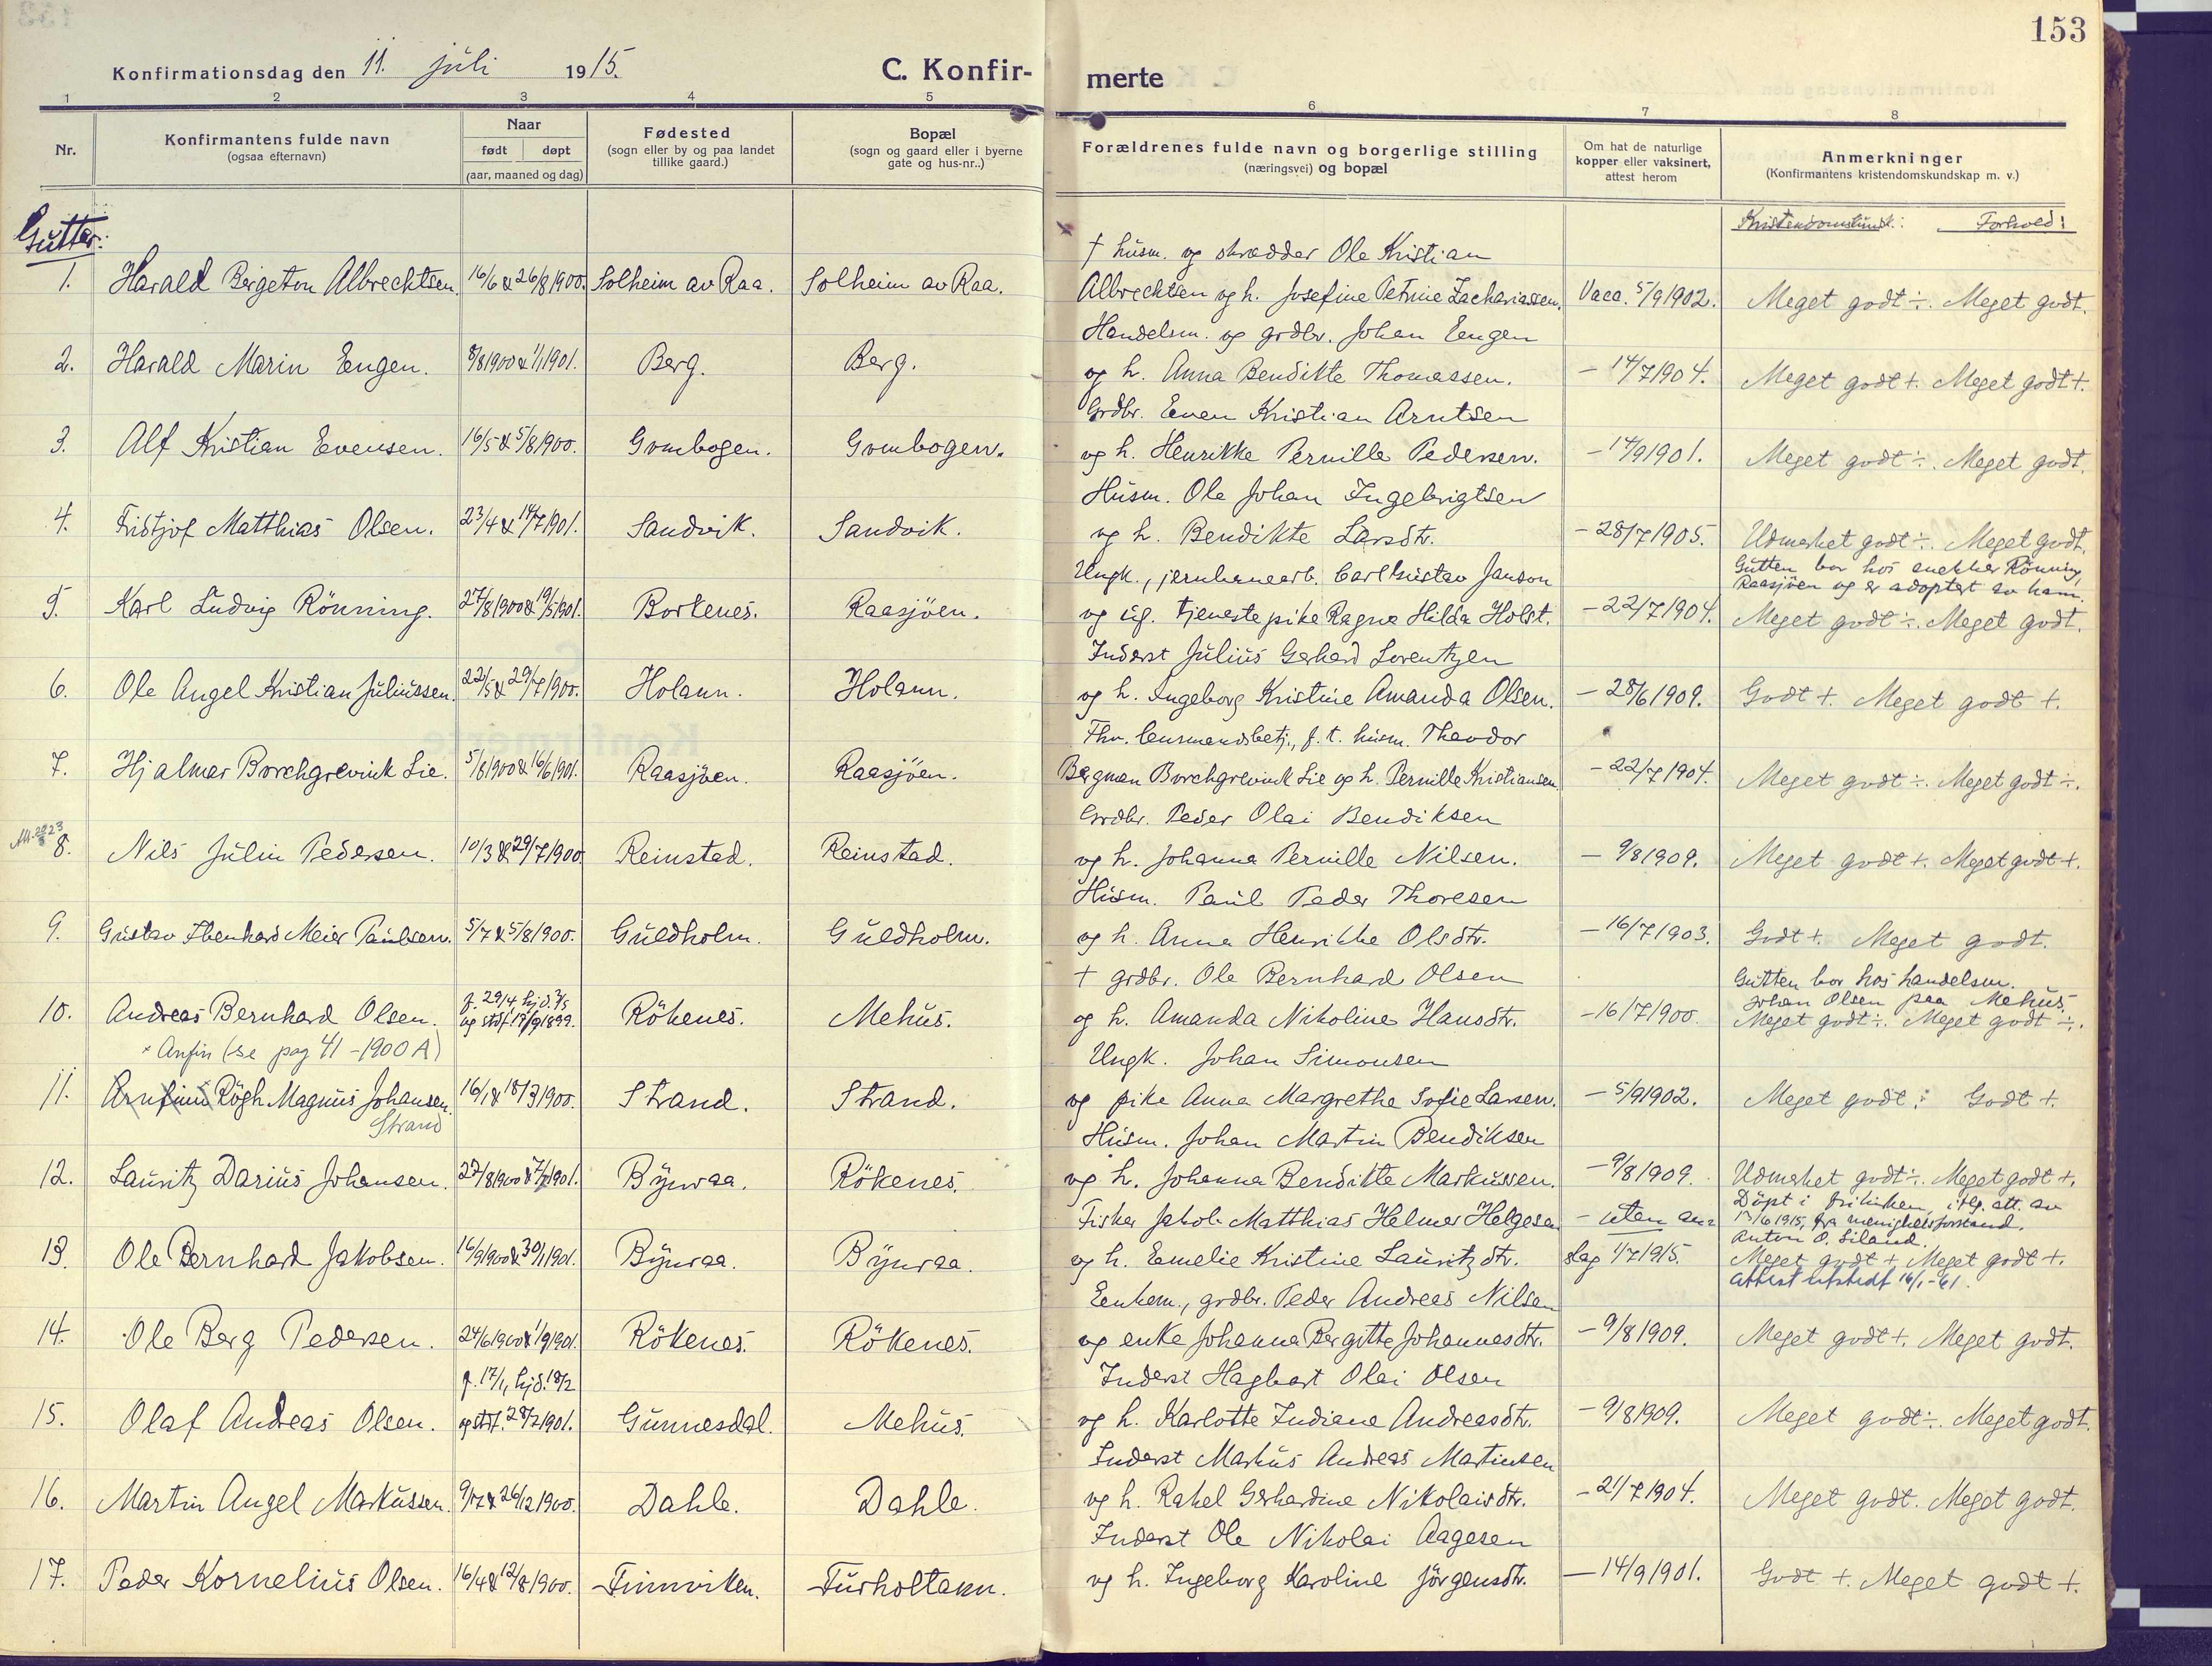 153
Konfirmationsdag den 11. juli 1915.
C. Konfirmerte
1 2 3 4 5 6 7 8
Nr.
Konfirmantens fulde navn
(ogsaa efternavn)
Naar
født | døpt
(aar, maaned og dag)
Fødested
(sogn eller by og paa landet
tillike gaard.)
Bopæl
(sogn og gaard eller i byerne
gate og hus-nr..)
Forældrenes fulde navn og borgerlige stilling
(næringsvei) og bopæl
Om hat de naturlige
kopper eller vaksinert,
attest herom
Anmerkninger
(Konfirmantens kristendomskundskap m. v.)
Gutter:
Kristendomskundsk.: Forhold:
† husm. og skrædder Ole Kristian
1. Harald Bergeton Albrechtsen. 16/6 & 26/8 1900. Solheim av Raa. Solheim av Raa. Albrechtsen og h. Josefine Petrine Zachariassen. Vacc. 5/9 1902. Meget godt ÷. Meget godt.
Handelsm. og grdbr. Johan Eengen
2. Harald Marin Engen. 8/8 1900 & 1/1 1901. Berg. Berg. og h. Anna Bendikte Thomassen. – 14/7 1904. Meget godt +. Meget godt +.
Grdbr. Even Kristian Arntsen
3. Alf Kristian Evensen. 16/5 & 5/8 1900. Grombogen. Grombogen. og h. Henrikke Pernille Pedersen. – 14/9 1901. Meget godt ÷. Meget godt.
Husm. Ole Johan Ingebrigtsen
4. Fridtjof Matthias Olsen. 23/4 & 14/7 1901. Sandvik. Sandvik. og h. Bendikte Larsdtr. – 28/7 1905. Udmerket godt ÷. Meget godt.
Ungk., jernbanearb. Carl Gustav Janson
Gutten bor hos snekker Rönning,
Raasjöen og er adoptert av ham.
5. Karl Ludvig Rönning. 27/8 1900 & 19/5 1901. Borkenes. Raasjöen. og ug. tjenestepike Ragna Hilda Holst. – 22/7 1904. Meget godt ÷. Meget godt.
Inderst Julius Gerhard Lorentzen
6. Ole Angel Kristian Juliussen. 22/5 & 29/7 1900. Holann. Holann. og h. Ingeborg Kristine Amanda Olsen. – 28/6 1909. Godt +. Meget godt +.
Fhv. lensmandsbetj., f. t. husm. Theodor
7. Hjalmar Borchgrevink Lie. 5/8 1900 & 16/6 1901. Raasjöen. Raasjöen. Bergman Borchgrevink Lie og h. Pernille Kristiansen. – 22/7 1904. Meget godt ÷. Meget godt ÷.
Grdbr. Peder Olai Bendiksen
8. Nils Julin Pedersen. 10/3 & 29/7 1900. Reinstad. Reinstad. og h. Johanna Pernille Nilsen. – 9/8 1909. Meget godt +. Meget godt +.
Husm. Paul Peder Thoresen
9. Gustav Ebenhard Meier Paulsen. 5/7 & 5/8 1900. Guldholm. Guldholm. og h. Anna Henrikke Olsdtr. – 16/7 1903. Godt +. Meget godt.
† grdbr. Ole Bernhard Olsen
Gutten bor hos handelsm.
Johan Olsen paa Mehus.
10. Andreas Bernhard Olsen. f. 29/4, hjd. 7/5 og stdf. 17/9 1899. Rökenes. Mehus. og h. Amanda Nikoline Hansdtr. – 16/7 1900. Meget godt ÷. Meget godt ÷.
× Anfin (se pag 41 – 1900 A)
Ungk. Johan Simonsen
11. Arnfinn × Rögh Magnus Johansen. 16/1 & 18/3 1900. Strand. Strand. og pike Anna Margrethe Sofie Larsen. – 5/9 1902. Meget godt ÷. Godt +.
Strand
Husm. Johan Martin Bendiksen
12. Lauritz Darius Johansen. 27/8 1900 & 7/7 1901. Bynraa. Rökenes. og h. Johanna Bendikte Markussen. – 9/8 1909. Udmerket godt ÷. Meget godt +.
Fisker Jakob Matthias Helmer Helgesen – uten an-
Döpt i frikirken, iflg. att. av
13/6 1915, fra menighetsforstand.
Anton O. Siland.
13. Ole Bernhard Jakobsen. 16/9 1900 & 30/1 1901. Bynraa. Bynraa. og h. Emelie Kristine Lauritzdtr. slag 1/7 1915. Meget godt +. Meget godt +.
Attest utstedt 16/1-61.
Eenkem., grdbr. Peder Andreas Nilsen
14. Ole Berg Pedersen. 24/6 1900 & 1/9 1901. Rökenes. Rökenes. og enke Johanna Bergitte Johannesdtr. – 9/8 1909. Meget godt +. Meget godt.
f. 17/1, hjd. 18/2
Inderst Hagbart Olai Olsen
15. Olaf Andreas Olsen. og stdf. 28/7 1901. Gunnesdal. Mehus. og h. Karlotte Indiane Andreasdtr. – 9/8 1909. Meget godt ÷. Meget godt.
Inderst Markus Andreas Martinsen
16. Martin Angel Markussen. 9/12 & 26/12 1900. Dahle. Dahle. og h. Rakel Gerhardine Nikolaisdtr. – 21/7 1904. Meget godt. Meget godt.
Inderst Ole Nikolai Aagesen
17. Peder Kornelius Olsen. 16/4 & 12/8 1900. Finnviken. Furholtann. og h. Ingeborg Karoline Jörgensdtr. – 14/9 1901. Godt +. Meget godt +.